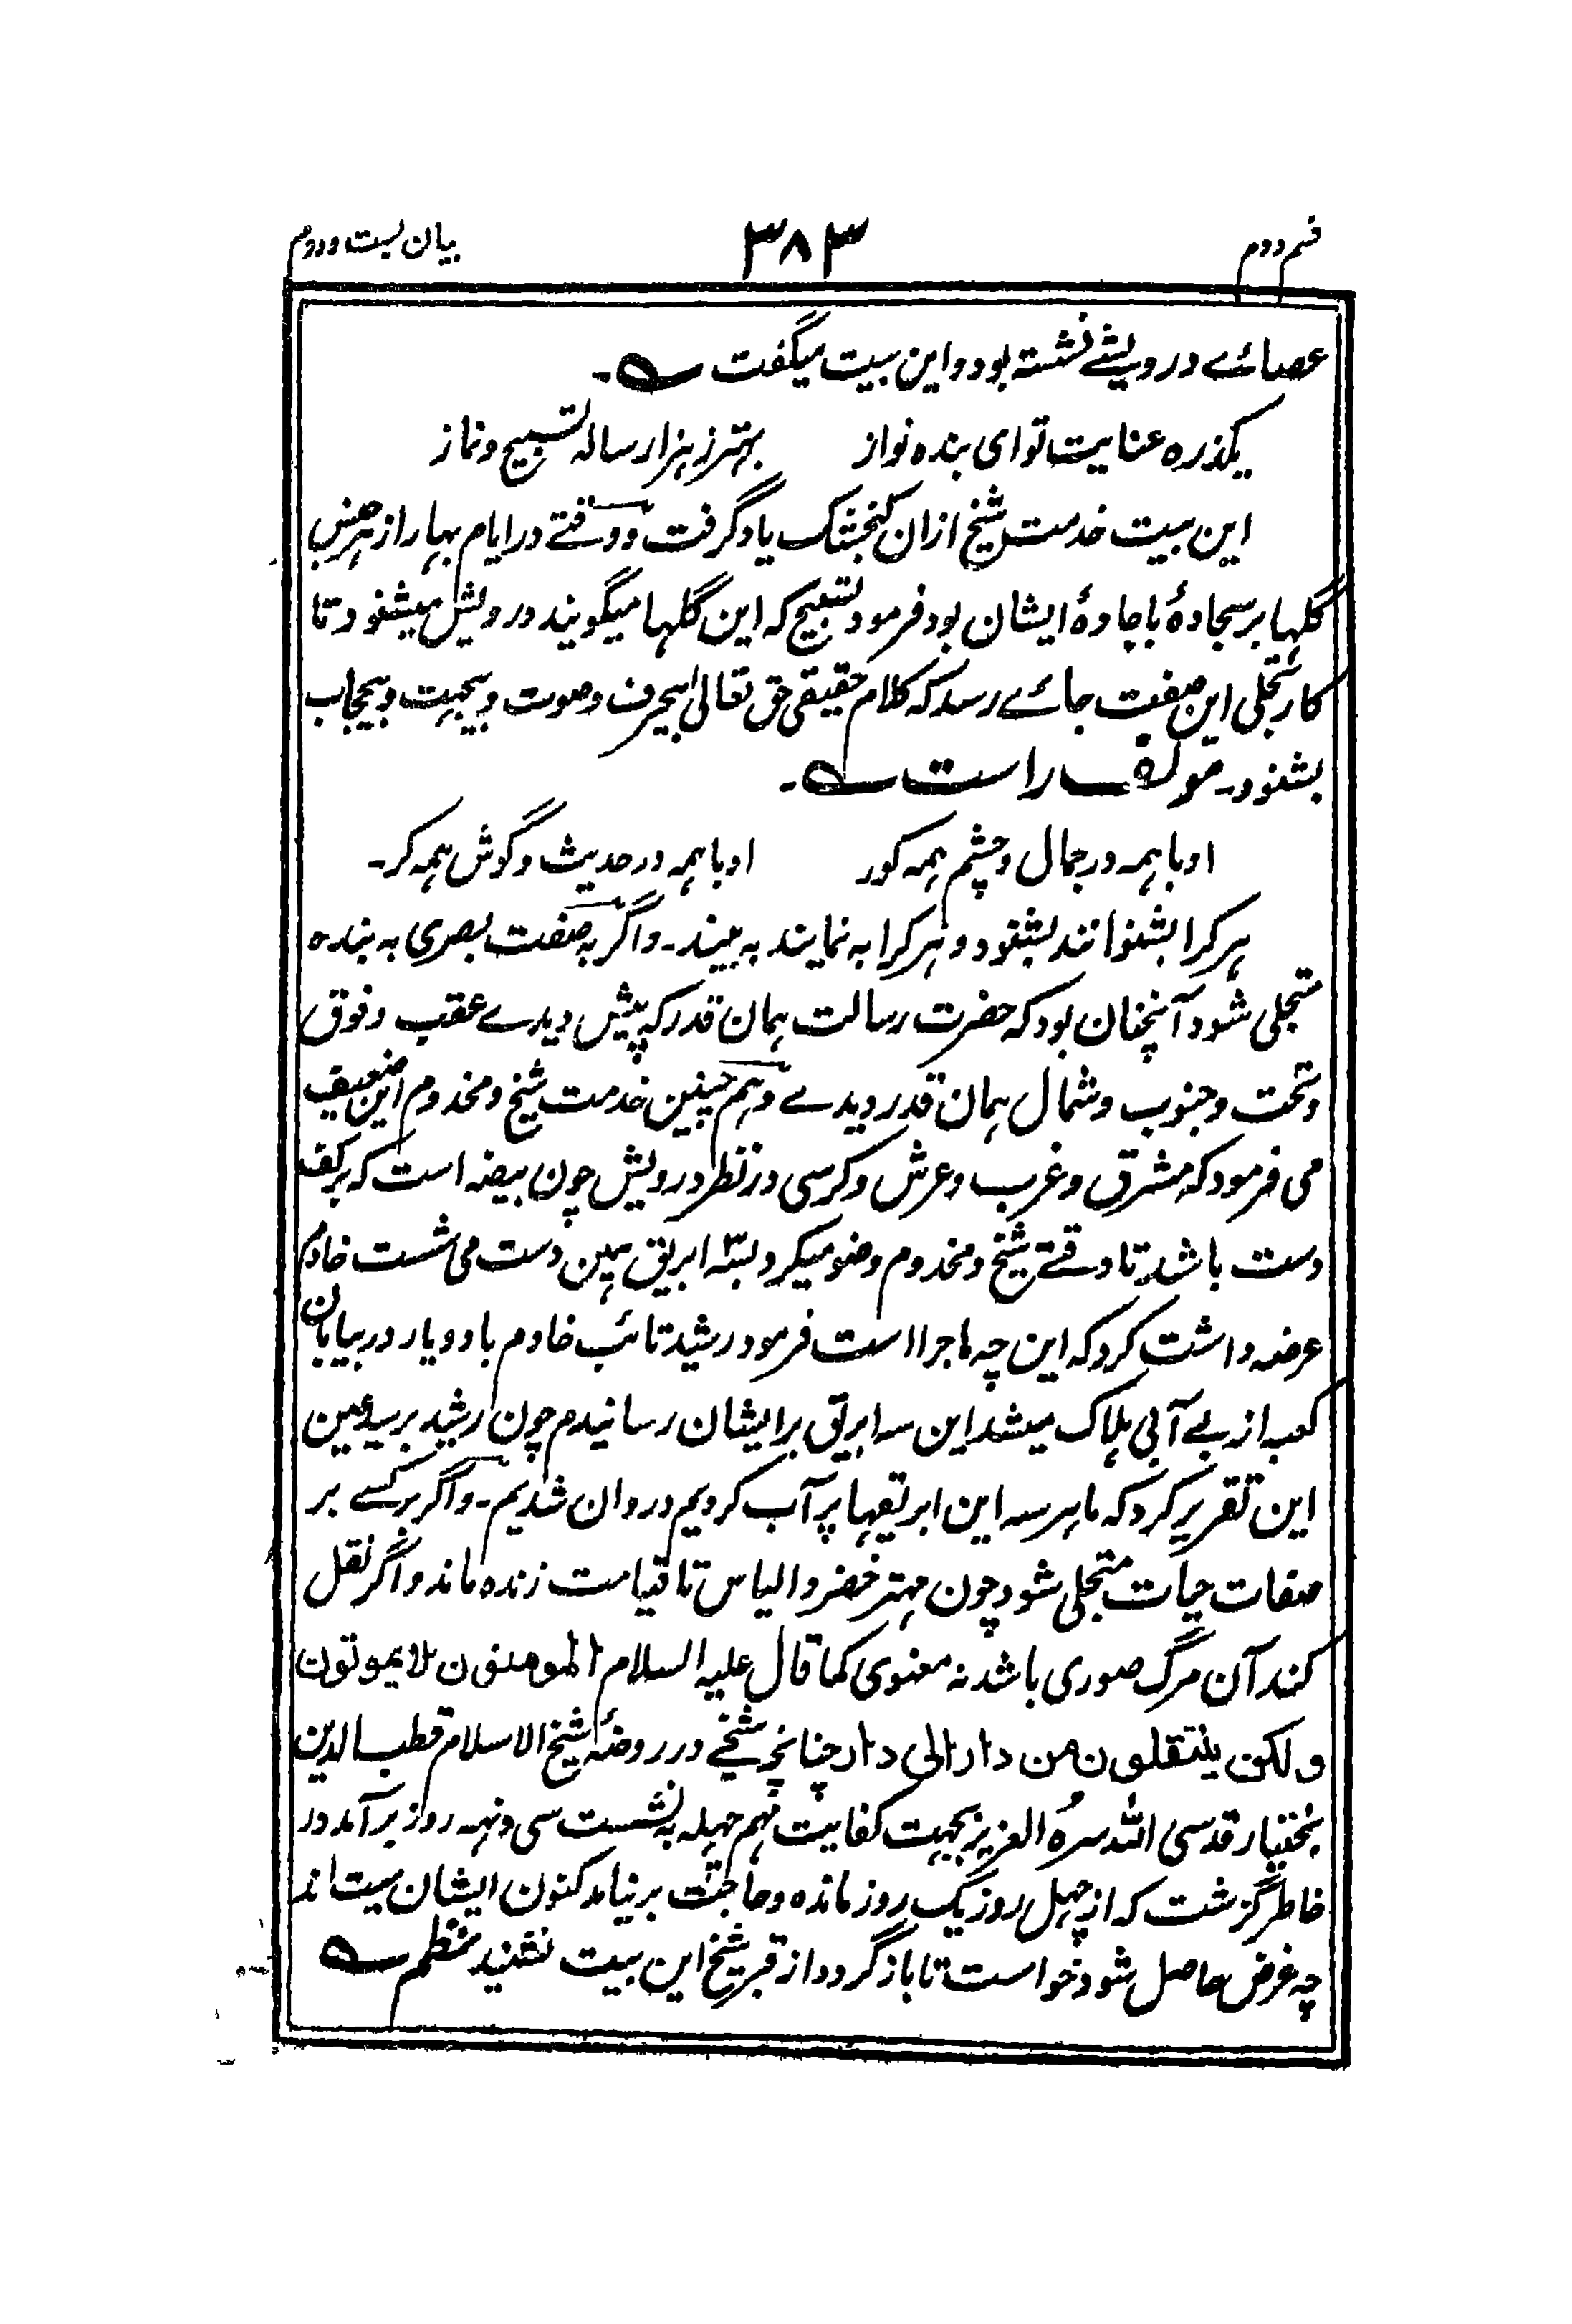 قسم دوم
۳۸۳
بیان بست و دوم
عصائے درویشے نشستہ بود و این بیت میگفت ؎ -
یکذرہ عنایت تو ای بندہ نواز بہتر ز ہزار سالہ تسبیح و نماز
این بیت خدمت شیخ ازان کنجشک یاد گرفت و وقتے در ایام بہار از ہر جنس
گلہا بر سجادۂ باجادۂ ایشان بود فرمود تسبیح کہ این گلہا میگویند درویش میشنود تا
کار تجلی این صفت جائے رسد کہ کلام حقیقی حق تعالیٰ بیحرف و صوت و بیجہت و بیحجاب
بشنود - مولف راست ؎ -
او با ہمہ در جمال و چشم ہمہ کور او با ہمہ در حدیث و گوش ہمہ کر -
ہر کرا بشنوانند بشنود و ہر کرا بہ نمایند بہ بیند - و اگر بہ صفت بصری بہ بندہ
متجلی شود آنچنان بود کہ حضرت رسالت ہمان قدر کہ پیش دیدے عقب و فوق
و تحت و جنوب و شمال ہمان قدر دیدے و ہم چنین خدمت شیخ و مخدوم این ضعیف
می فرمود کہ مشرق و غرب و عرش و کرسی در نظر درویش چون بیضہ است کہ بر کف
دست باشد تا وقتے شیخ و مخدوم وضو میکرد بسہ ابریق ہمین دست می شست خادم
عرضہ داشت کرد کہ این چہ ماجرا است فرمود رشید تائب خادم با دو یار در بیابان
کعبہ از بے آبی ہلاک میشد این سہ ابریق بر ایشان رسانیدم چون رشید برسید عین
این تقریر کرد کہ ما ہر سہ این ابریقہا پر آب کردیم و روان شدیم - و اگر بر کسے بر
صفات حیات متجلی شود چون مہتر خضر و الیاس تا قیامت زندہ ماند و اگر نقل
کند آن مرگ صوری باشد نہ معنوی کما قال علیہ السلام المومنون لا یموتون
ولکن ینتقلون من دار الی دار چنانچہ شیخے در روضۂ شیخ الاسلام قطب الدین
بختیار قدسی اللہ سرہُ العزیز بجہت کفایت مہم چہلہ بہ نشست سی و نہہ روز برآمد در
خاطر گزشت کہ از چہل روز یک روز ماندہ و حاجت بر نیامد کنون ایشان میت اند
چہ غرض حاصل شود خواست تا باز گردد از قبر شیخ این بیت شنید نظم ؎